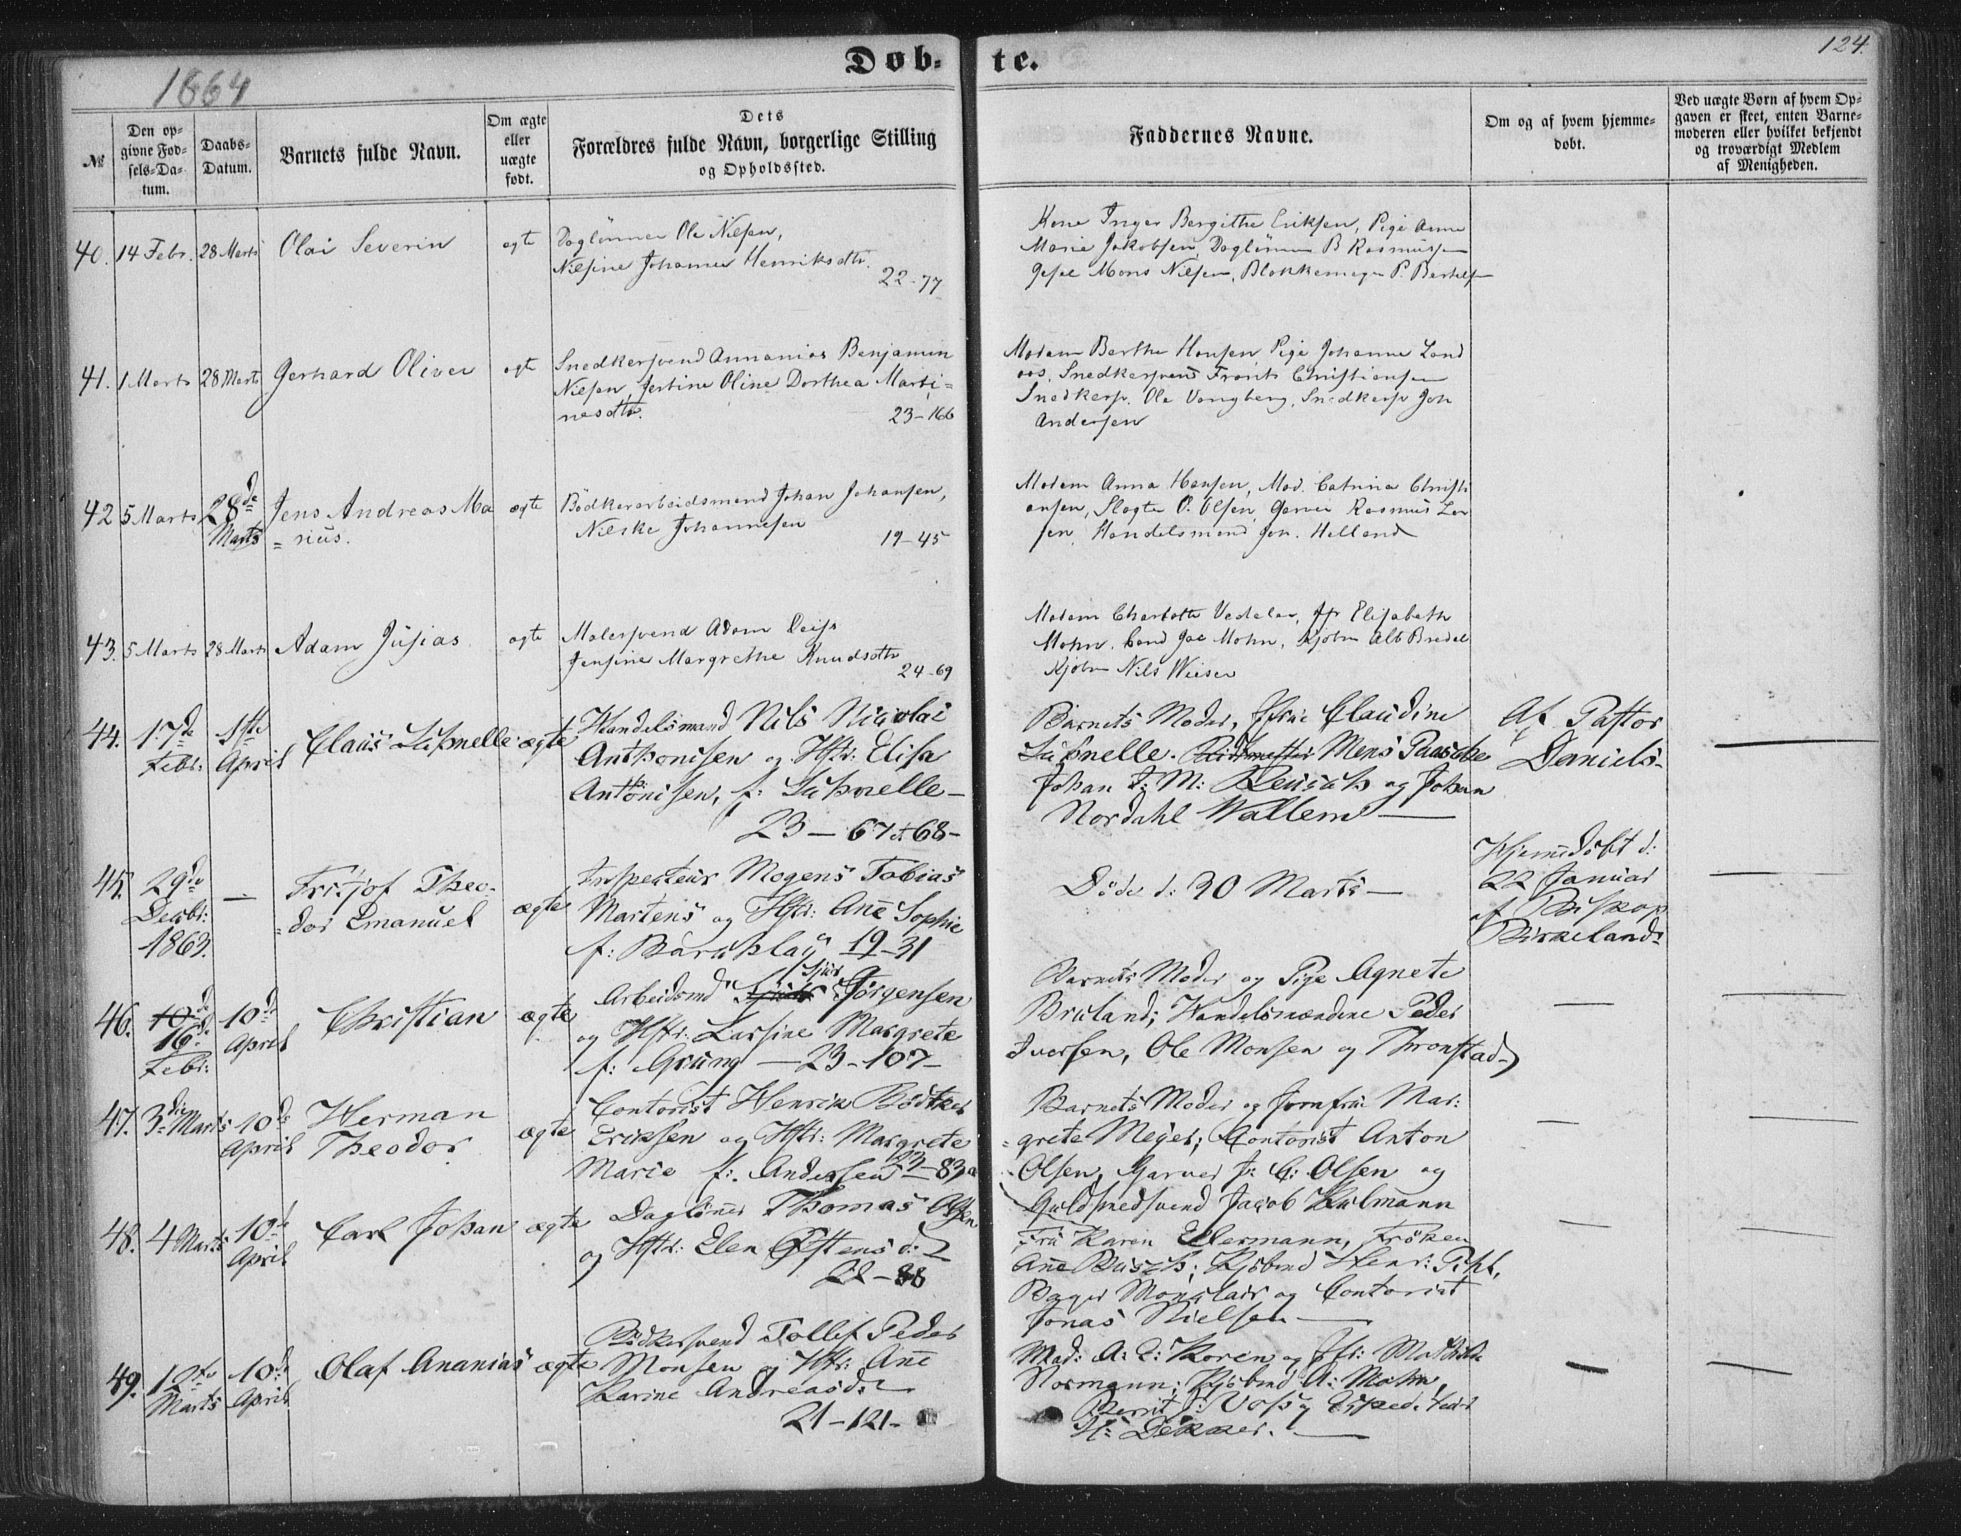 124.
1864
Døb- te.
№
Den op-
givne Fød-
sels-Da-
tum.
Daabs-
Datum.
Barnets fulde Navn.
Om ægte
eller
uægte
født.
Dets
Forældres fulde Navn, borgerlige Stilling
og Opholdssted.
Faddernes Navne.
Om og af hvem hjemme-
døbt.
Ved uægte Børn af hvem Op-
gaven er skeet, enten Barne-
moderen eller hvilket bekjendt
og troværdigt Medlem
af Menigheden.
40. 14 Febr. 28 Marts Olai Severin ægte
Daglønner Ole Nilsen,
Nilsine Johanne Henriksdtr.
22-77
Kone Inger Bergithe Eriksen, Pige Anne
Marie Jakobsen, Daglønner B Rasmussen
Mons Nilsen, Blokkemager P. Bertels
41. 1 Marts 28 Marts Gerhard Oliver ægte
Snedkersvend Annanias Benjamin
Nilsen, Jertine Oline Dorthea Marti-
nesdtr.
23-166
Madam Berthe Hansen, Pige Johanne Land
aas, Snedkersvend Frants Christiansen
Snedkersv. Ole Vangberg, Snedkersv Joh
Andersen
42 5 Marts 28de
Marts
Jens Andreas Ma
= rius.
ægte
Bødkerarbeidsmand Johan Johansen,
Nilske Johannesen
19-45
Madam Anna Hansen, Mad. Catrina Christi
ansen, Slagter O. Olsen, Garver Rasmus Lar
sen, Handelsmand Joh. Helland
43. 5 Marts 28 Marts Adam Jusias ægte
Malersvend Adam Deiss
Jensine Margrethe Knudsdtr
24-69
Madam Charlotte Vedeler, Jfr Elisabeth
Mohn, Cand Jac Mohn, Kjøbm Alb Bredal
Kjøbm Nils Wieser
44. 17de
Febr.
1ste
April
Claus Lühnelle ægte
Handelsmand Nils Nicolai
Anthonisen og Hstr: Elisa
Anthonisen, f: Lühnelle —
23 — 67 & 68 —
Barnets Moder, Jfrue Claudine
Lühnelle. Mens Paasche
Johan F: M: Reusch og Johan
Nordahl Wallem —
Af Pastor
Daniels-
45. 29de
Decbr:
1863.
—
Fritjof Theo-
= dor Emanuel
ægte
Inspecteur Mogens Tobias
Martens og Hstr: Ane Sophie
f: 19-31
Døde d: 30 Marts —
Hjemedøbt d:
22 Januar
af Biskop
Birkeland.
46. 10d
16d
Febr:
10d
April
Christian ægte
Arbeidsmd Sjur Jørgensen
og Hstr: Larsine Margrete
f: Grung — 23 - 107 -
Barnets Moder og Pige Agnete
Bruland; Handelsmændene Peder
Iversen, Ole Monsen og Thronstad
47. 3die Marts 10de
April
Herman
Theodor
ægte
Contorist Henrik Bødtker
Eriksen og Hstr: Margrete
Marie f: Andersen 23-83a
Barnets Moder og Jomfrue Mar:
= grete Meyer; Contorist Anton
Olsen, Garver J: C: Olsen og
Guldsmedsvend Jacob Kulmann
48. 4 Marts 10de
April
Carl Johan ægte
Daglønner Thomas Olsen
og Hstr: Elen Østensd:
22-88
Fru Karen Ellermann, Frøken
Ane Busch; Kjøbmd Henr: Pihl,
Bager Monclair og Contorist
Jonas Nielsen —
49. 12te
Marts
10de
April
Olaf Ananias ægte
Bødkersvend Tollef Peder
Monsen og Hstr: Ane
Karine Andreasd:
21-121-
Mad: A: E: Koren og Jfr: Mathilde
Normann; Kjøbmd A: Mohn,
Berrit J: Voss
H: Dekker. —